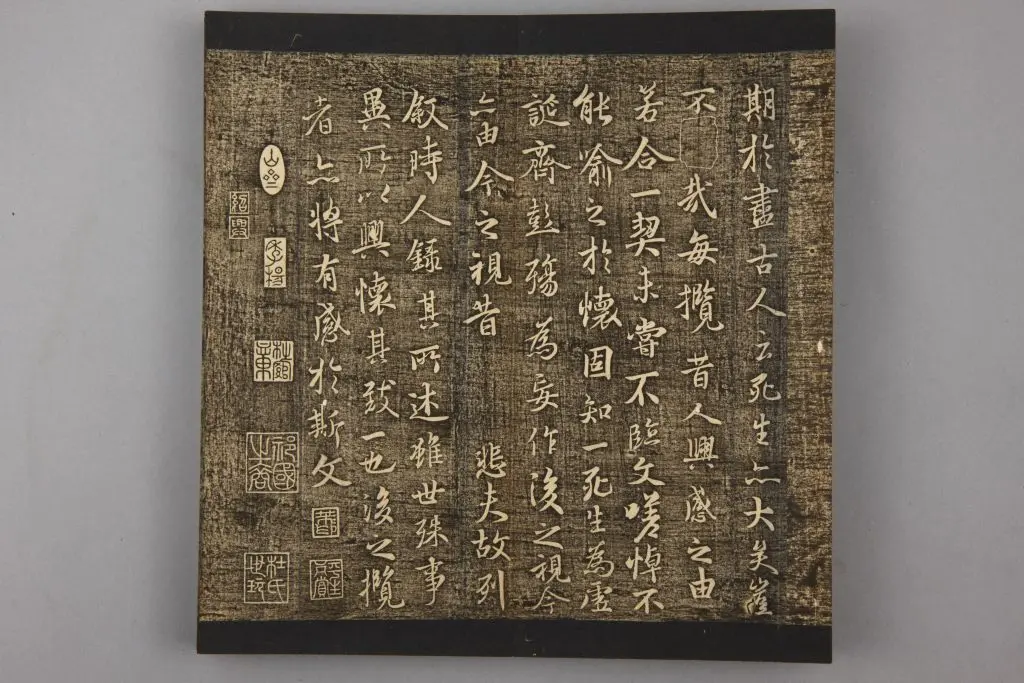 期於盡古人云死生亦大矣豈
不哉每攬昔人興感之由
若合一契未嘗不臨文嗟悼不
能喻之於懷固知一死生為虛
誕齊彭殤為妄作後之視今
亦由今之視昔 悲夫故列
敘時人錄其所述雖世殊事
異所以興懷其致一也後之攬
者亦將有感於斯文
季揚
杜綰章
祁國之裔